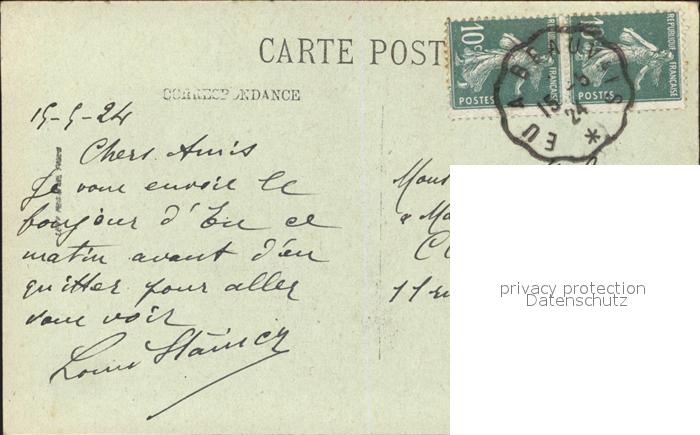 CARTE POST
CORRESPONDANCE
10c
RÉPUBLIQUE FRANÇAISE
POSTES
10c
RÉPUBLIQUE FRANÇAISE
POSTES
EU A BEAUVAIS
15
24
15-5-24
Chers Amis
Je vous envoie le
bonjour d'Eu ce
matin avant d'en
quitter pour aller
vous voir
Louis
Mons
11 r
privacy protection
Datenschutz